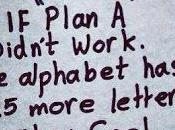 IF "Plan A
Didn't Work.
e alphabet has
5 more letter
Cool